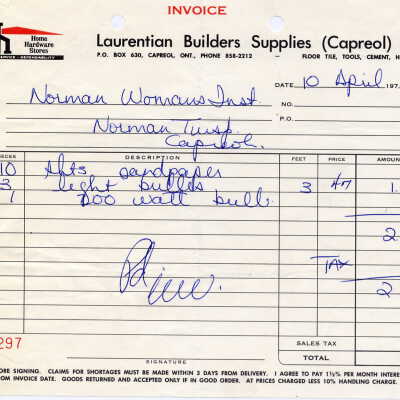 INVOICE
Home
Hardware
Stores
SERVICE - DEPENDABILITY
Laurentian Builders Supplies (Capreol)
P.O. BOX 630, CAPREOL, ONT., PHONE 858-2212
FLOOR TILE, TOOLS, CEMENT, H
DATE 10 April 197
Norman Womans Inst.
NO.
Norman Twsp.
P.O.
Capreol.
ECES DESCRIPTION FEET PRICE AMOUN
10 shts. sandpaper
3 light bulbs 3 47 1.
1 200 watt bulb
2
TAX
2
297
SALES TAX
TOTAL
SIGNATURE
ORE SIGNING. CLAIMS FOR SHORTAGES MUST BE MADE WITHIN 3 DAYS FROM DELIVERY. I AGREE TO PAY 1½% PER MONTH INTERES
OM INVOICE DATE. GOODS RETURNED AND ACCEPTED ONLY IF IN GOOD ORDER. AT PRICES CHARGED LESS 10% HANDLING CHARGE.